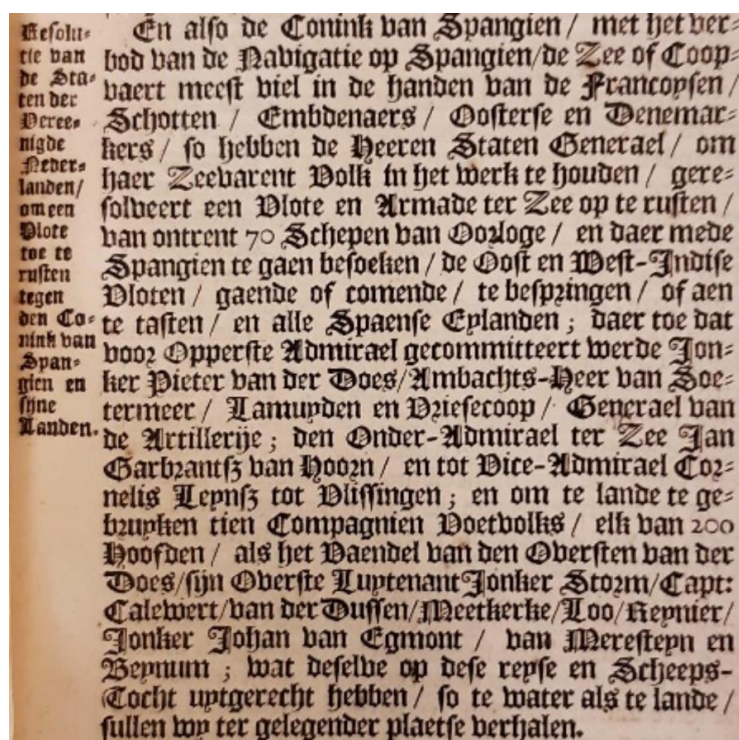 Resolu-
tie van
de Sta-
ten der
Veree-
nigde
Neder-
landen/
om een
Vlote
toe te
rusten
tegen
den Co-
nink van
Span-
gien en
syne
Landen.
En also de Conink van Spangien / met het ver-
bod van de Navigatie op Spangien/de Zee of Coop-
vaert meest viel in de handen van de Francoysen /
Schotten / Embdenaers / Oosterse en Denemar-
kers / so hebben de Heeren Staten Generael / om
haer Zeevarent Volk in het werk te houden / gere-
solveert een Vlote en Armade ter Zee op te rusten /
van ontrent 70 Schepen van Oorloge / en daer mede
Spangien te gaen besoeken / de Oost en West-Indise
Vloten / gaende of comende / te bespringen / of aen
te tasten / en alle Spaense Eylanden ; daer toe dat
voor Opperste Admirael gecommitteert werde Jon-
ker Pieter van der Does/Ambachts-Heer van Soe-
termeer / Lamuyden en Vriesecoop / Generael van
de Artillerije ; den Onder-Admirael ter Zee Jan
Garbrantsz van Hoorn / en tot Vice-Admirael Cor-
nelis Leynsz tot Vlissingen ; en om te lande te ge-
bruyken tien Compagnien Voetvolks / elk van 200
Hoofden / als het Vaendel van den Oversten van der
Does/sijn Overste Luytenant Jonker Storm/Capt:
Calewert/van der Dussen/Meetkerke/Loo/Reynier/
Jonker Johan van Egmont / van Meresteyn en
Beynum ; wat deselve op dese reyse en Scheeps-
Tocht uytgerecht hebben / so te water als te lande /
sullen wy ter gelegender plaetse verhalen.